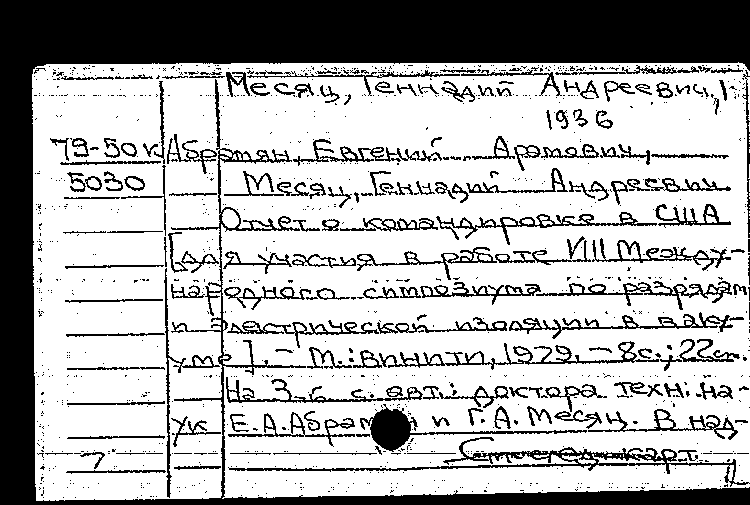 Месяц, Геннадий Андреевич,
1936
79-50к Абрамян, Евгений Арамович,
5030 Месяц, Геннадий Андреевич
Отчет о командировке в США
[для участия в работе VIII Между-
народного симпозиума по разрядам
и электрической изоляции в ваку-
уме]. - М.: ВИНИТИ, 1979. - 8с.; 22см.
На 3-6 с. авт.: доктора техн. на-
ук Е.А.Абрамян и Г.А.Месяц. В над-
карт.